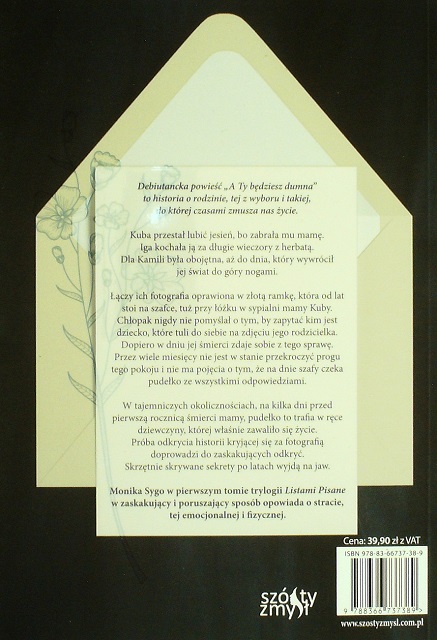 Debiutancka powieść „A Ty będziesz dumna”
to historia o rodzinie, tej z wyboru i takiej,
do której czasami zmusza nas życie.
Kuba przestał lubić jesień, bo zabrała mu mamę.
Iga kochała ją za długie wieczory z herbatą.
Dla Kamili była obojętna, aż do dnia, który wywrócił
jej świat do góry nogami.
Łączy ich fotografia oprawiona w złotą ramkę, która od lat
stoi na szafce, tuż przy łóżku w sypialni mamy Kuby.
Chłopak nigdy nie pomyślał o tym, by zapytać kim jest
dziecko, które tuli do siebie na zdjęciu jego rodzicielka.
Dopiero w dniu jej śmierci zdaje sobie z tego sprawę.
Przez wiele miesięcy nie jest w stanie przekroczyć progu
tego pokoju i nie ma pojęcia o tym, że na dnie szafy czeka
pudełko ze wszystkimi odpowiedziami.
W tajemniczych okolicznościach, na kilka dni przed
pierwszą rocznicą śmierci mamy, pudełko to trafia w ręce
dziewczyny, której właśnie zawaliło się życie.
Próba odkrycia historii kryjącej się za fotografią
doprowadzi do zaskakujących odkryć.
Skrzętnie skrywane sekrety po latach wyjdą na jaw.
Monika Sygo w pierwszym tomie trylogii Listami Pisane
w zaskakujący i poruszający sposób opowiada o stracie,
tej emocjonalnej i fizycznej.
Cena: 39,90 zł z VAT
ISBN 978-83-66737-38-9
9 788366 737389 >
szósty
zmysł
www.szostyzmysl.com.pl